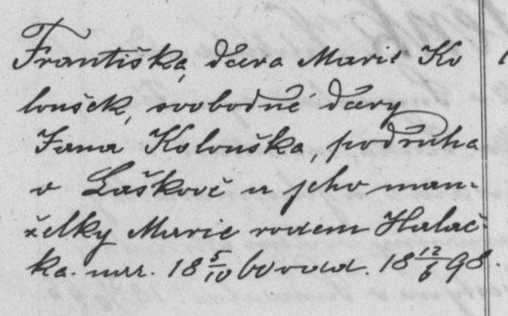 Františka, dcera Marie Ko
loušek, svobodné dcery
Jana Kolouška, podruha
v Laškově a jeho man-
želky Marie rodem Halač-
ka. nar. 18 5/10 60 odd. 18 12/6 98.